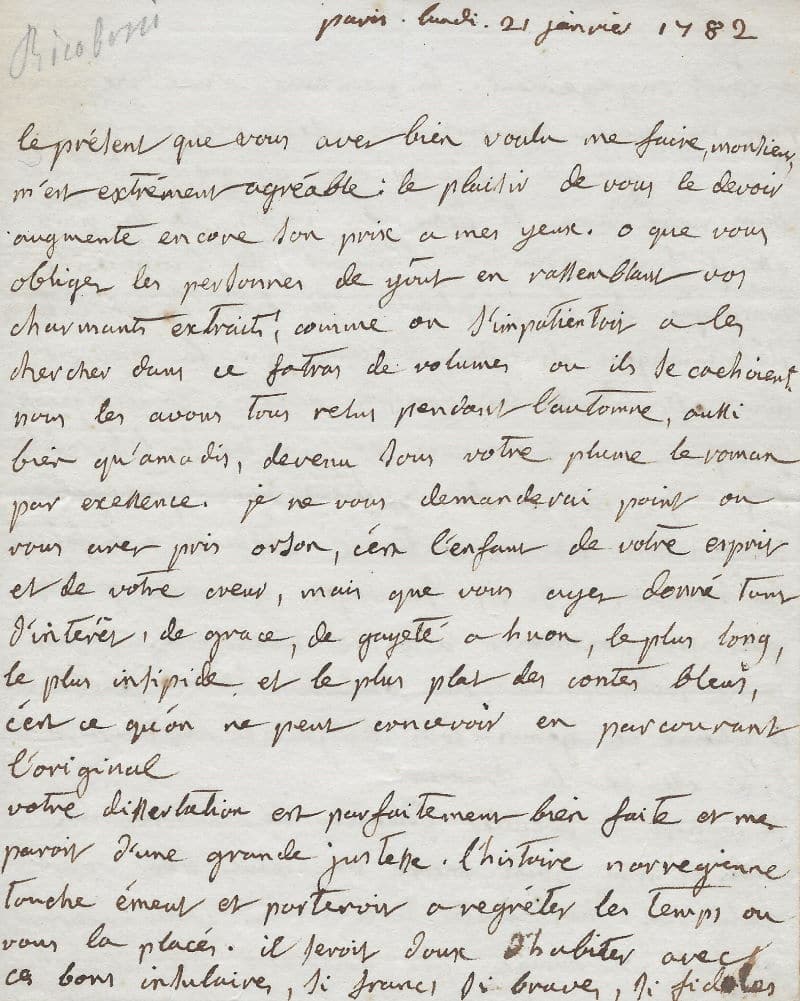 Ricoboni
paris. lundi. 21 janvier 1782
le présent que vous avez bien voulu me faire, monsieur,
m'est extrément agréable: le plaisir de vous le devoir
augmente encore son prix a mes yeux. o que vous
obligez les personnes de goût en rassemblant vos
charmants extraits! comme on s'impatientoit a les
chercher dans ce fatras de volumes ou ils se cachoient.
nous les avons tous relus pendant l'automne, aussi
bien qu'amadis, devenu sous votre plume le roman
par exellence. je ne vous demanderai point ou
vous avez pris orson, c'est l'enfant de votre esprit
et de votre coeur, mais que vous ayez donné tant
d'intérêt, de grace, de gayeté a huon, le plus long,
le plus insipide et le plus plat des contes bleus,
c'est ce qu'on ne peut concevoir en parcourant
l'original
votre dissertation est parfaitement bien faite et me
paroit d'une grande justesse. l'histoire norregienne
touche émeut et porteroit a regréter les temps ou
vous la placés. il seroit doux d'habiter avec
ces bons insulaires, si francs si braves, si fideles